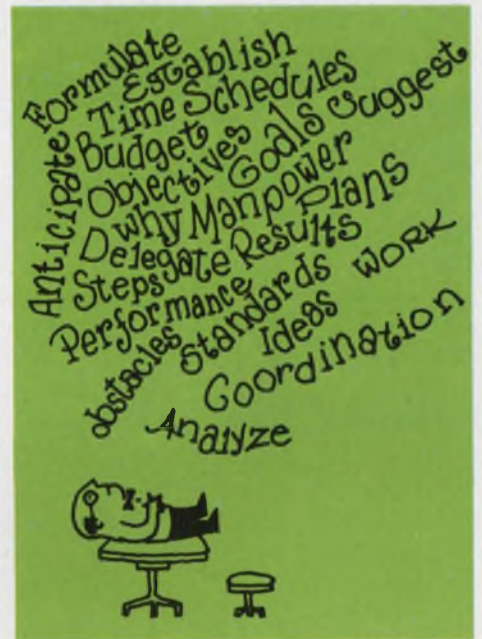 Formulate
Establish
Anticipate
Time Schedules
Budget
Suggest
Objectives
Goals
why Manpower
Delegate
Plans
Steps
Results
Performance
WORK
Standards
obstacles
Ideas
Coordination
Analyze